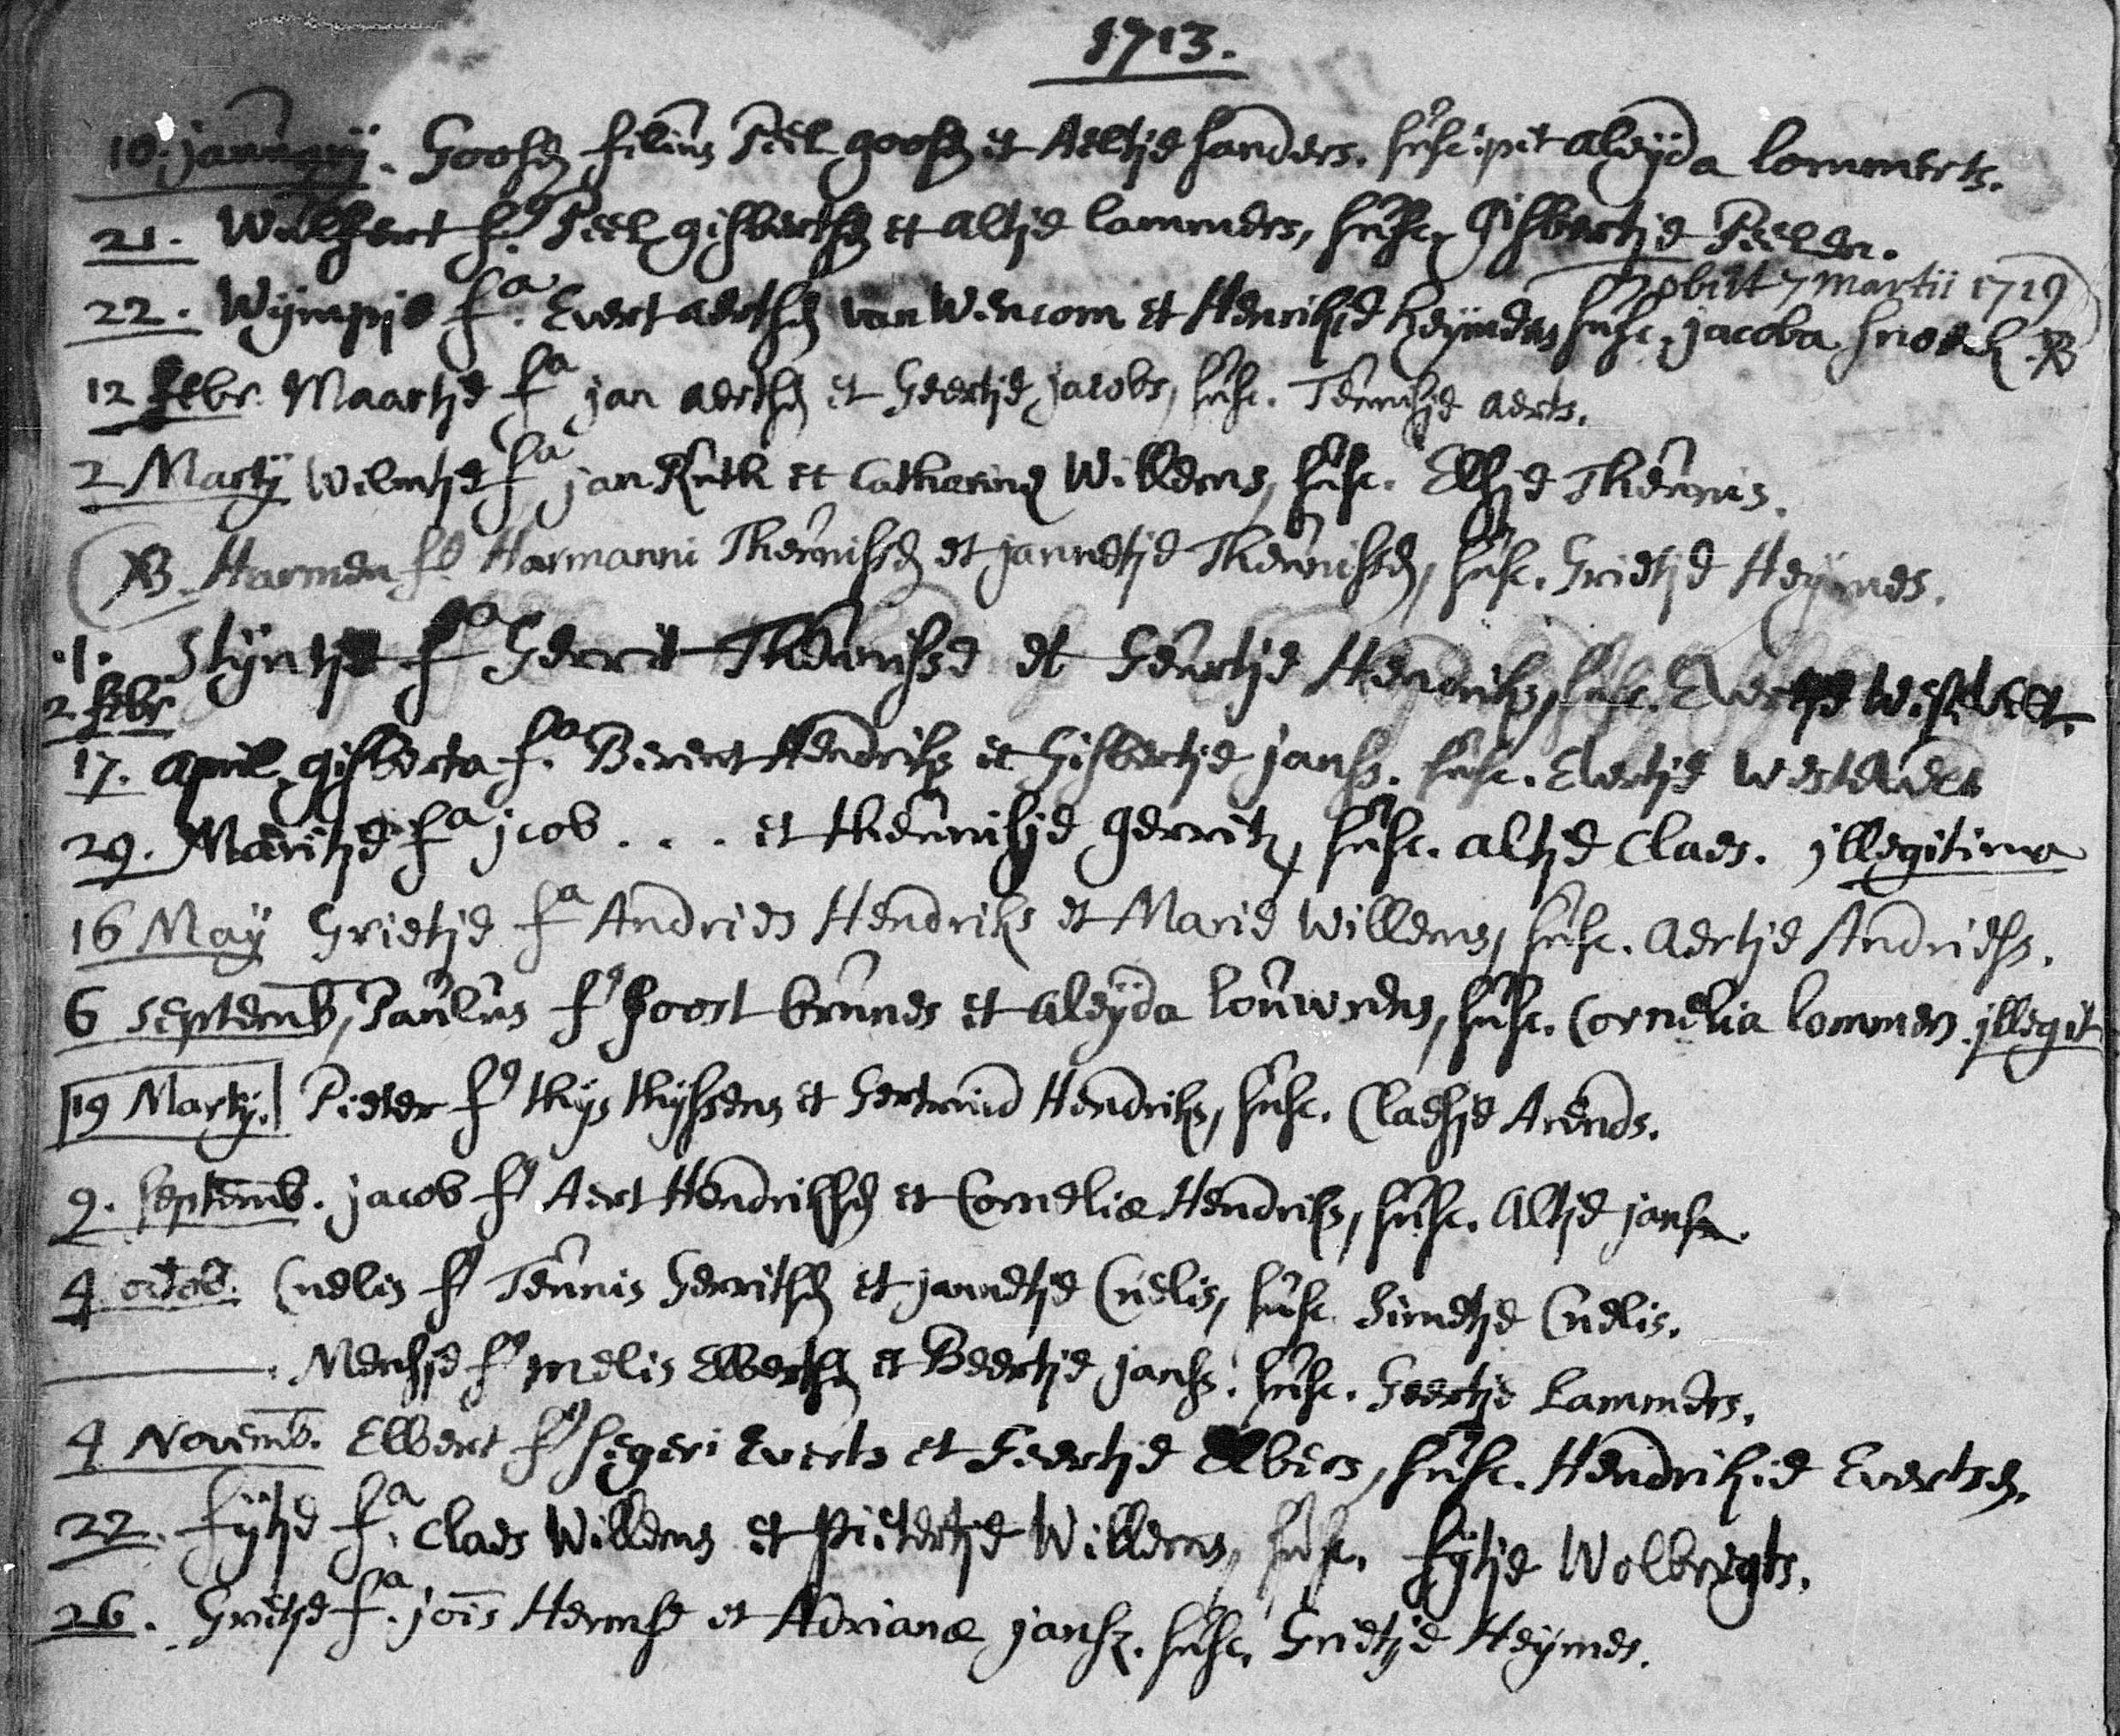 1713.
10. januarij. Goosen filius Peel goosen et Aeltje sanders. suscipit aleijda lommerts.
21. Wulfert fs. Peel gisbertsen et altje lammers, susc. Gisbertje Peelen.
obiit 7 Martii 1719
22. Wijmpje fa. Evert aertsen van Wencom et Henrikje heijmens susc. jacoba snoeck. NB
12 febr. Maartje fa jan aertsen et Geertje jacobs, susc. Teunisje aerts.
2 Martij Wilmtje fa jan Ruth et Catharina Willems, susc. Elsje Theunis.
NB. Harmen fs. Harmanni Theunissen et jannetje Theunissen, susc. Grietje Heijmes.
.1. Stijntje fa Gerrit Theunisse et Geurtje Hendriks, susc. Evertje Westvelt.
2 febr
17. april, gisberta fa. Berent Hendriks et Gisbertje jans. susc. Evertje Westervelt
29. Marritje fa jcob . . . et theunisje gerrits, susc. altje Claes. jllegitima
16 Maij Grietje fa Andries Hendriks et Marie Willems, susc. Aertje Andriess.
6 septemb, Paulus fs joost brunes et aleyda louwrens, susc. Cornelia lommers. jllegit.
19 Martij. Pieter fs thijs thijssens et Gertruid Hendriks, susc. Claesje Arends.
9. septemb. jacob fs Aert Hendriksen et Corneliae Hendriks, susc. Altje jansen.
4 octob. Cnelis fs Teunis Gerritsen et jannetje Cnelis, susc. Simetje Cnelis.
. Mensje fs melis Elbertsen et Beertje jans. susc. Geertje Lammers.
4 Novemb. Elbert fs segeri Everts et Geertje Elbers, susc. Hendrikje Evertsen.
22. fijtje fa. Claes Willems et Pietertje Willems, susc. fijtje Wolbregts.
26. Grietje fa. jois Hermse et Adrianae jansz. susc. Grietje Heijmes.